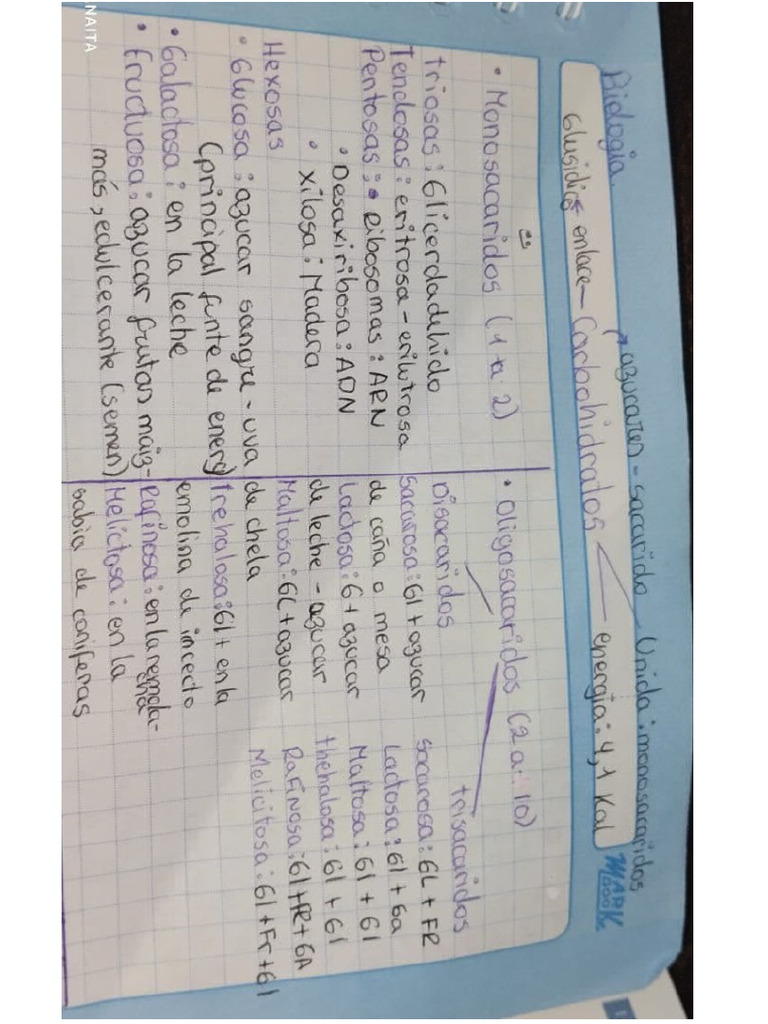 Biología.
azucares - sacarido Unida: monosacaridos
Glusidics enlace - Carbohidratos energia: 4,1 Kal
MARK BOOK
• Monosacaridos (1 a 2)
triosas: Glicerdadehido
Tendosas: eritrosa - erilutrosa
Pentosas: • Ribosomas: ARN
• Desaxiribosa: ADN
• xilosa: Madera
Hexosas
• Glucosa: azucar sangre - uva
(principal funte de energ)
• Galactosa: en la leche
• fructuosa: azucar frutas maiz-
más, edulcerante (semen)
• Oligosacaridos (2 a: 10)
Disacaridos
Sacarosa: Gl + azucar
de caña o mesa
Lactosa: G + azucar
de leche - azucar
Maltosa: GL + azucar
de chela
trehalosa: Gl + en la
emolina de incecto
Rafinosa: en la remola-
cha
Melictosa: en la
sabia de coniferas
trisacaridos
Sacarosa: GL + FR
Lactosa: Gl + Ga
Maltosa: Gl + Gl
thehalosa: Gl + Gl
Rafinosa: Gl + FR + GA
Melicitosa: Gl + Fr + Gl
NAITA